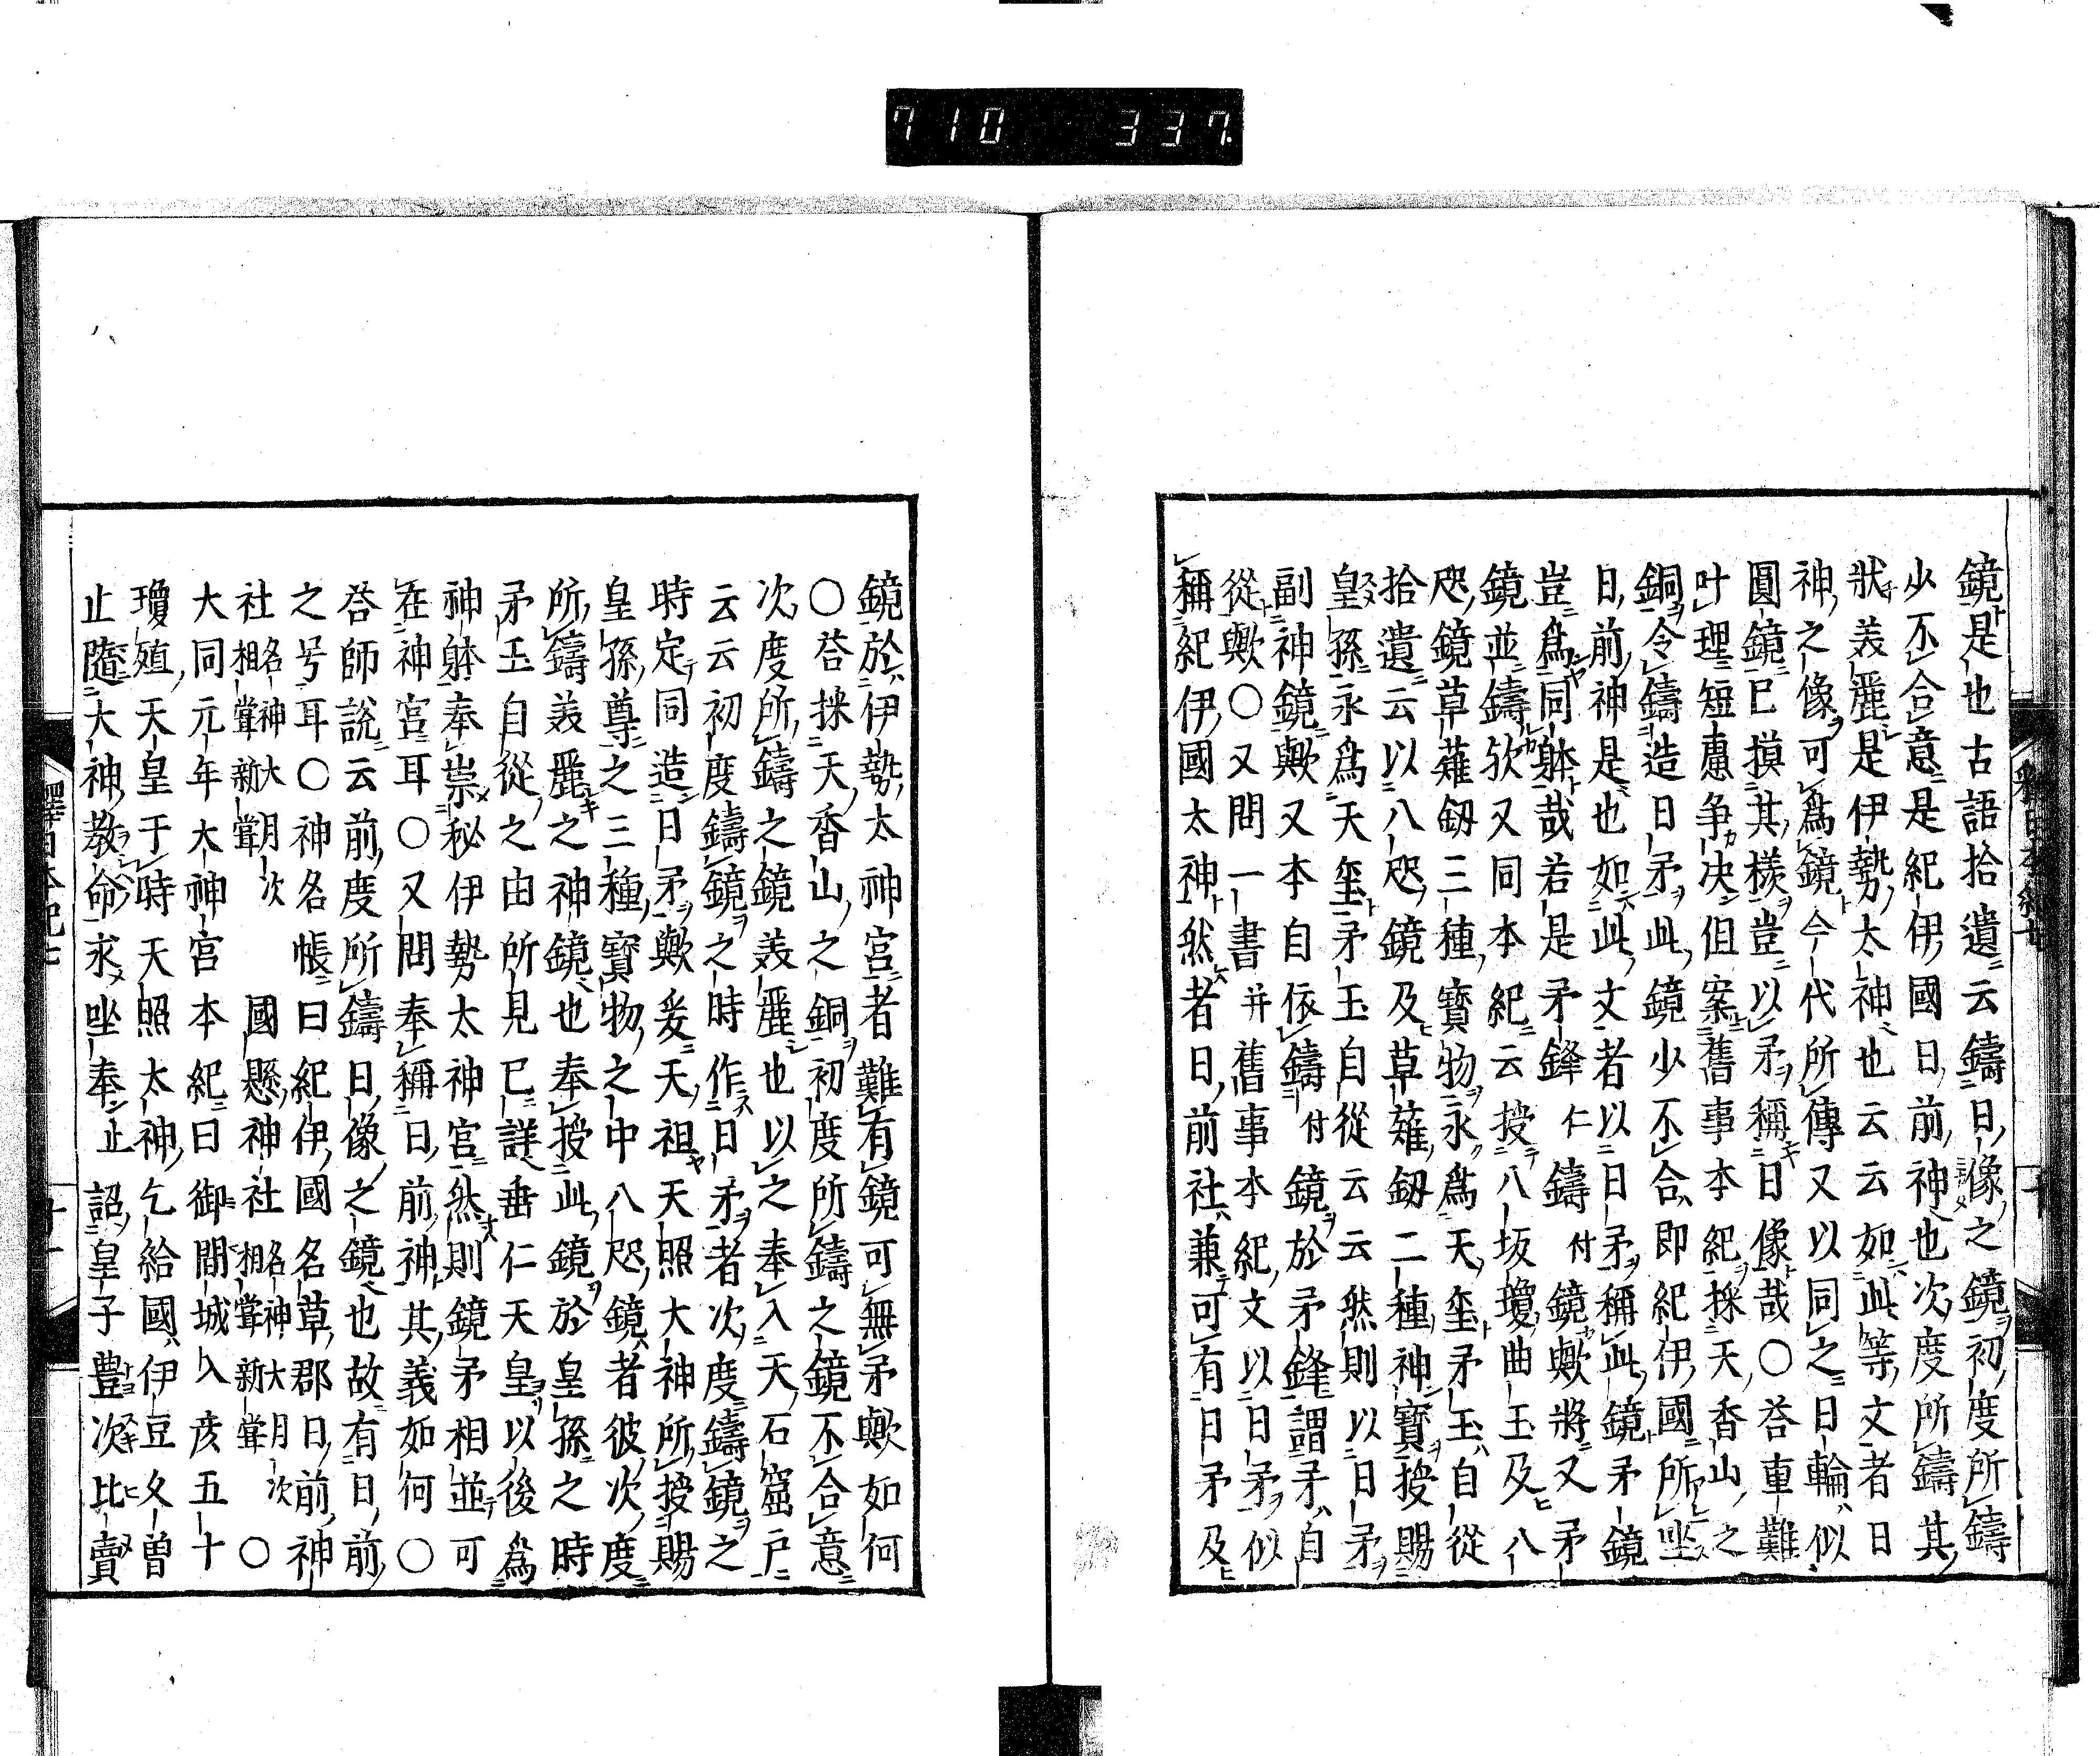 710 337
鏡是也古語拾遺云鑄日像之鏡初度所鑄
少不合意是紀伊國日前神也次度所鑄其
狀美麗是伊勢太神也云云如此等文者日
神之像可爲鏡今代所傳又以同之日輪似
圓鏡已摸其樣豈以矛稱日像哉○荅車難
叶理短慮争决但案舊事本紀採天香山之
銅令鑄造日矛此鏡少不合即紀伊國所坐
日前神是也如此文者以日矛稱此鏡矛鏡
豈爲同躰哉若是矛鋒仁鑄付鏡歟將又矛
鏡並鑄欤又同本紀云授八坂瓊曲玉及八
咫鏡草薙釼三種寳物永爲天璽矛玉自從
拾遺云以八咫鏡及草薙釼二種神寳授賜
皇孫永爲天璽矛玉自從云云然則以日矛
副神鏡歟又本自依鑄付鏡於矛鋒謂矛自
從歟○又問一書并舊事本紀文以日矛似
稱紀伊國太神然者日前社兼可有日矛及
鏡於伊勢太神宮者難有鏡可無矛歟如何
○荅採天香山之銅初度所鑄之鏡不合意
次度所鑄之鏡美麗也以之奉入天石窟戸
云云初度鑄鏡之時作日矛者次度鑄鏡之
時定同造日矛歟爰天祖天照大神所授賜
皇孫尊之三種寳物之中八咫鏡者彼次度
所鑄美麗之神鏡也奉授此鏡於皇孫之時
矛玉自從之由所見已詳垂仁天皇以後爲
神躰奉崇秘伊勢太神宮然則鏡矛相並可
在神宮耳○又問奉稱日前神其義如何○
荅師說云前度所鑄日像之鏡也故有日前
之号耳○神名帳曰紀伊國名草郡日前神
社名神大月次相甞新甞國懸神社名神大月次相甞新甞○
大同元年大神宮本紀曰御間城入彦五十
瓊殖天皇于時天照太神乞給國伊豆久曽
止隨大神教命求坐奉止詔皇子豊次比賣